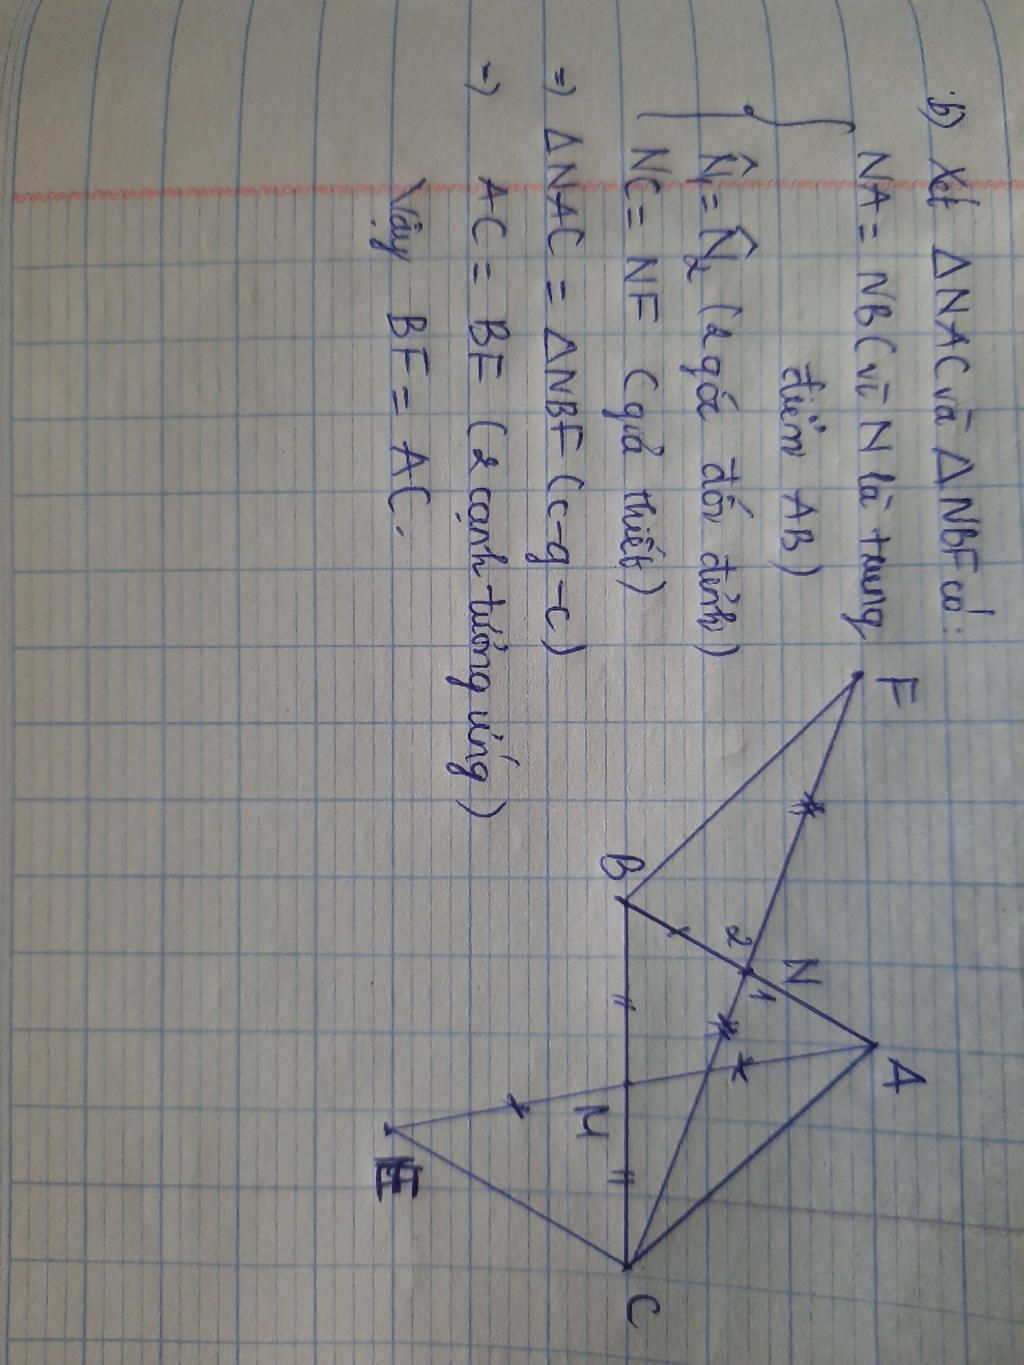 b) Xét ΔNAC và ΔNBF có:
NA = NB (vì N là trung
điểm AB)
N̂₁ = N̂₂ (2 góc đối đỉnh)
NC = NF (giả thiết)
=> ΔNAC = ΔNBF (c-g-c)
=> AC = BF (2 cạnh tương ứng)
Vậy BF = AC.
F
A
N
1
2
B
M
C
E